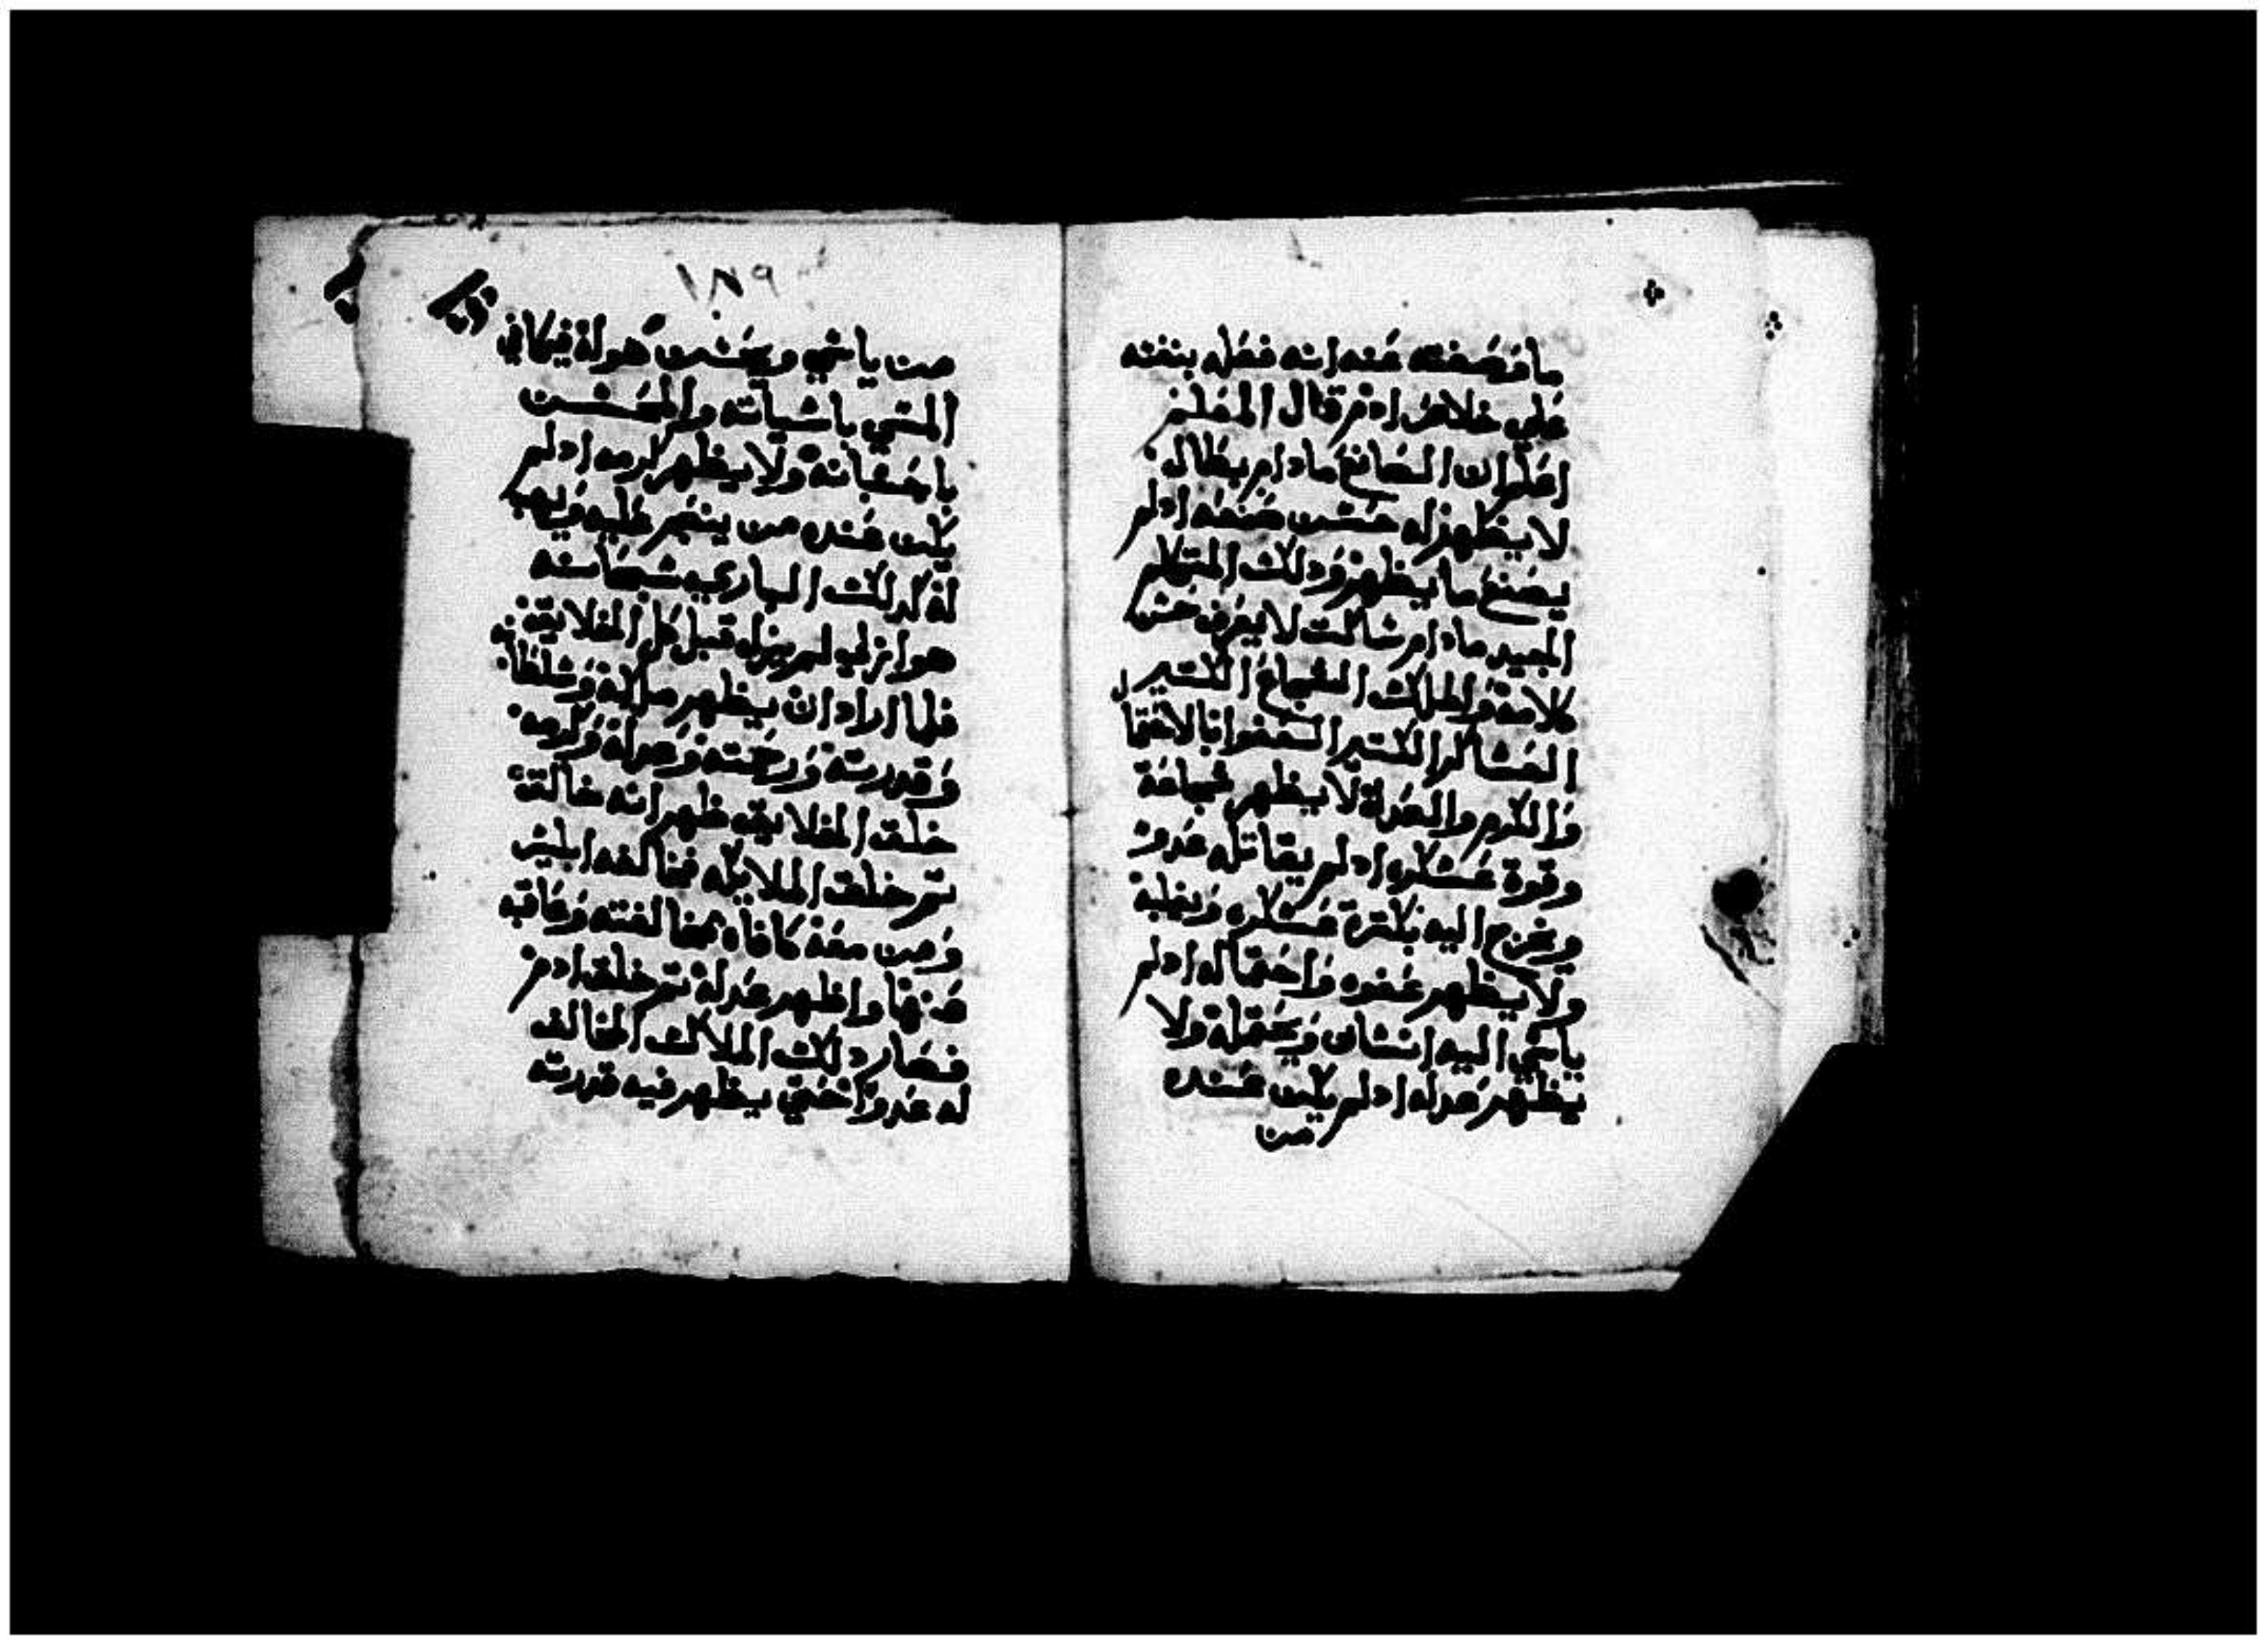 ما وصفته عنه انه فعله بنفته
علي خلاص ادم قال المعلم
اعلم ان الصانع مادام بطال
لا يظهر له حسن صنعه ادلم
يصنع ما يظهر ودلك المتكلم
الجيد مادام ساكت لا يعرف حسن
كلامه والملك الشجاع الكتير
العساكر الكتير العفو الاحتما
والكرم والعدل لا يظهر شجاعة
وقوة عسكره ادلم يقاتله عدو
ويخرج اليه بكترة عسكره ويغلبه
ولا يظهر عفوه واحتماله ادلم
ياتي اليه انسان ويحتمله ولا
يظهر عدله ادلم يكن عنده
من
١٨٩
من ياسي ويحسن هوله فيكافي
المسي باسياته والمحسن
باحسانه ولا يظهر كرمه ادلم
يكن عنده من ينعم عليه ويهب
له كدلك الباري سبحانه
هو ازلي لم يزل قبل كل الخلايق
فلما اراد ان يظهر ملكه وسلطانه
وقدرته ورحمته وعدله وكرمه
خلق الخلايق ظهر انه خالق
تم خلق الملايكه فخالفه ابليس
ومن معه كافاه بمخالفته وعاقبه
عنها واظهر عدله تم خلق ادم
فصار دلك الملاك المخالف
له عدوا حتي يظهر فيه قدرته